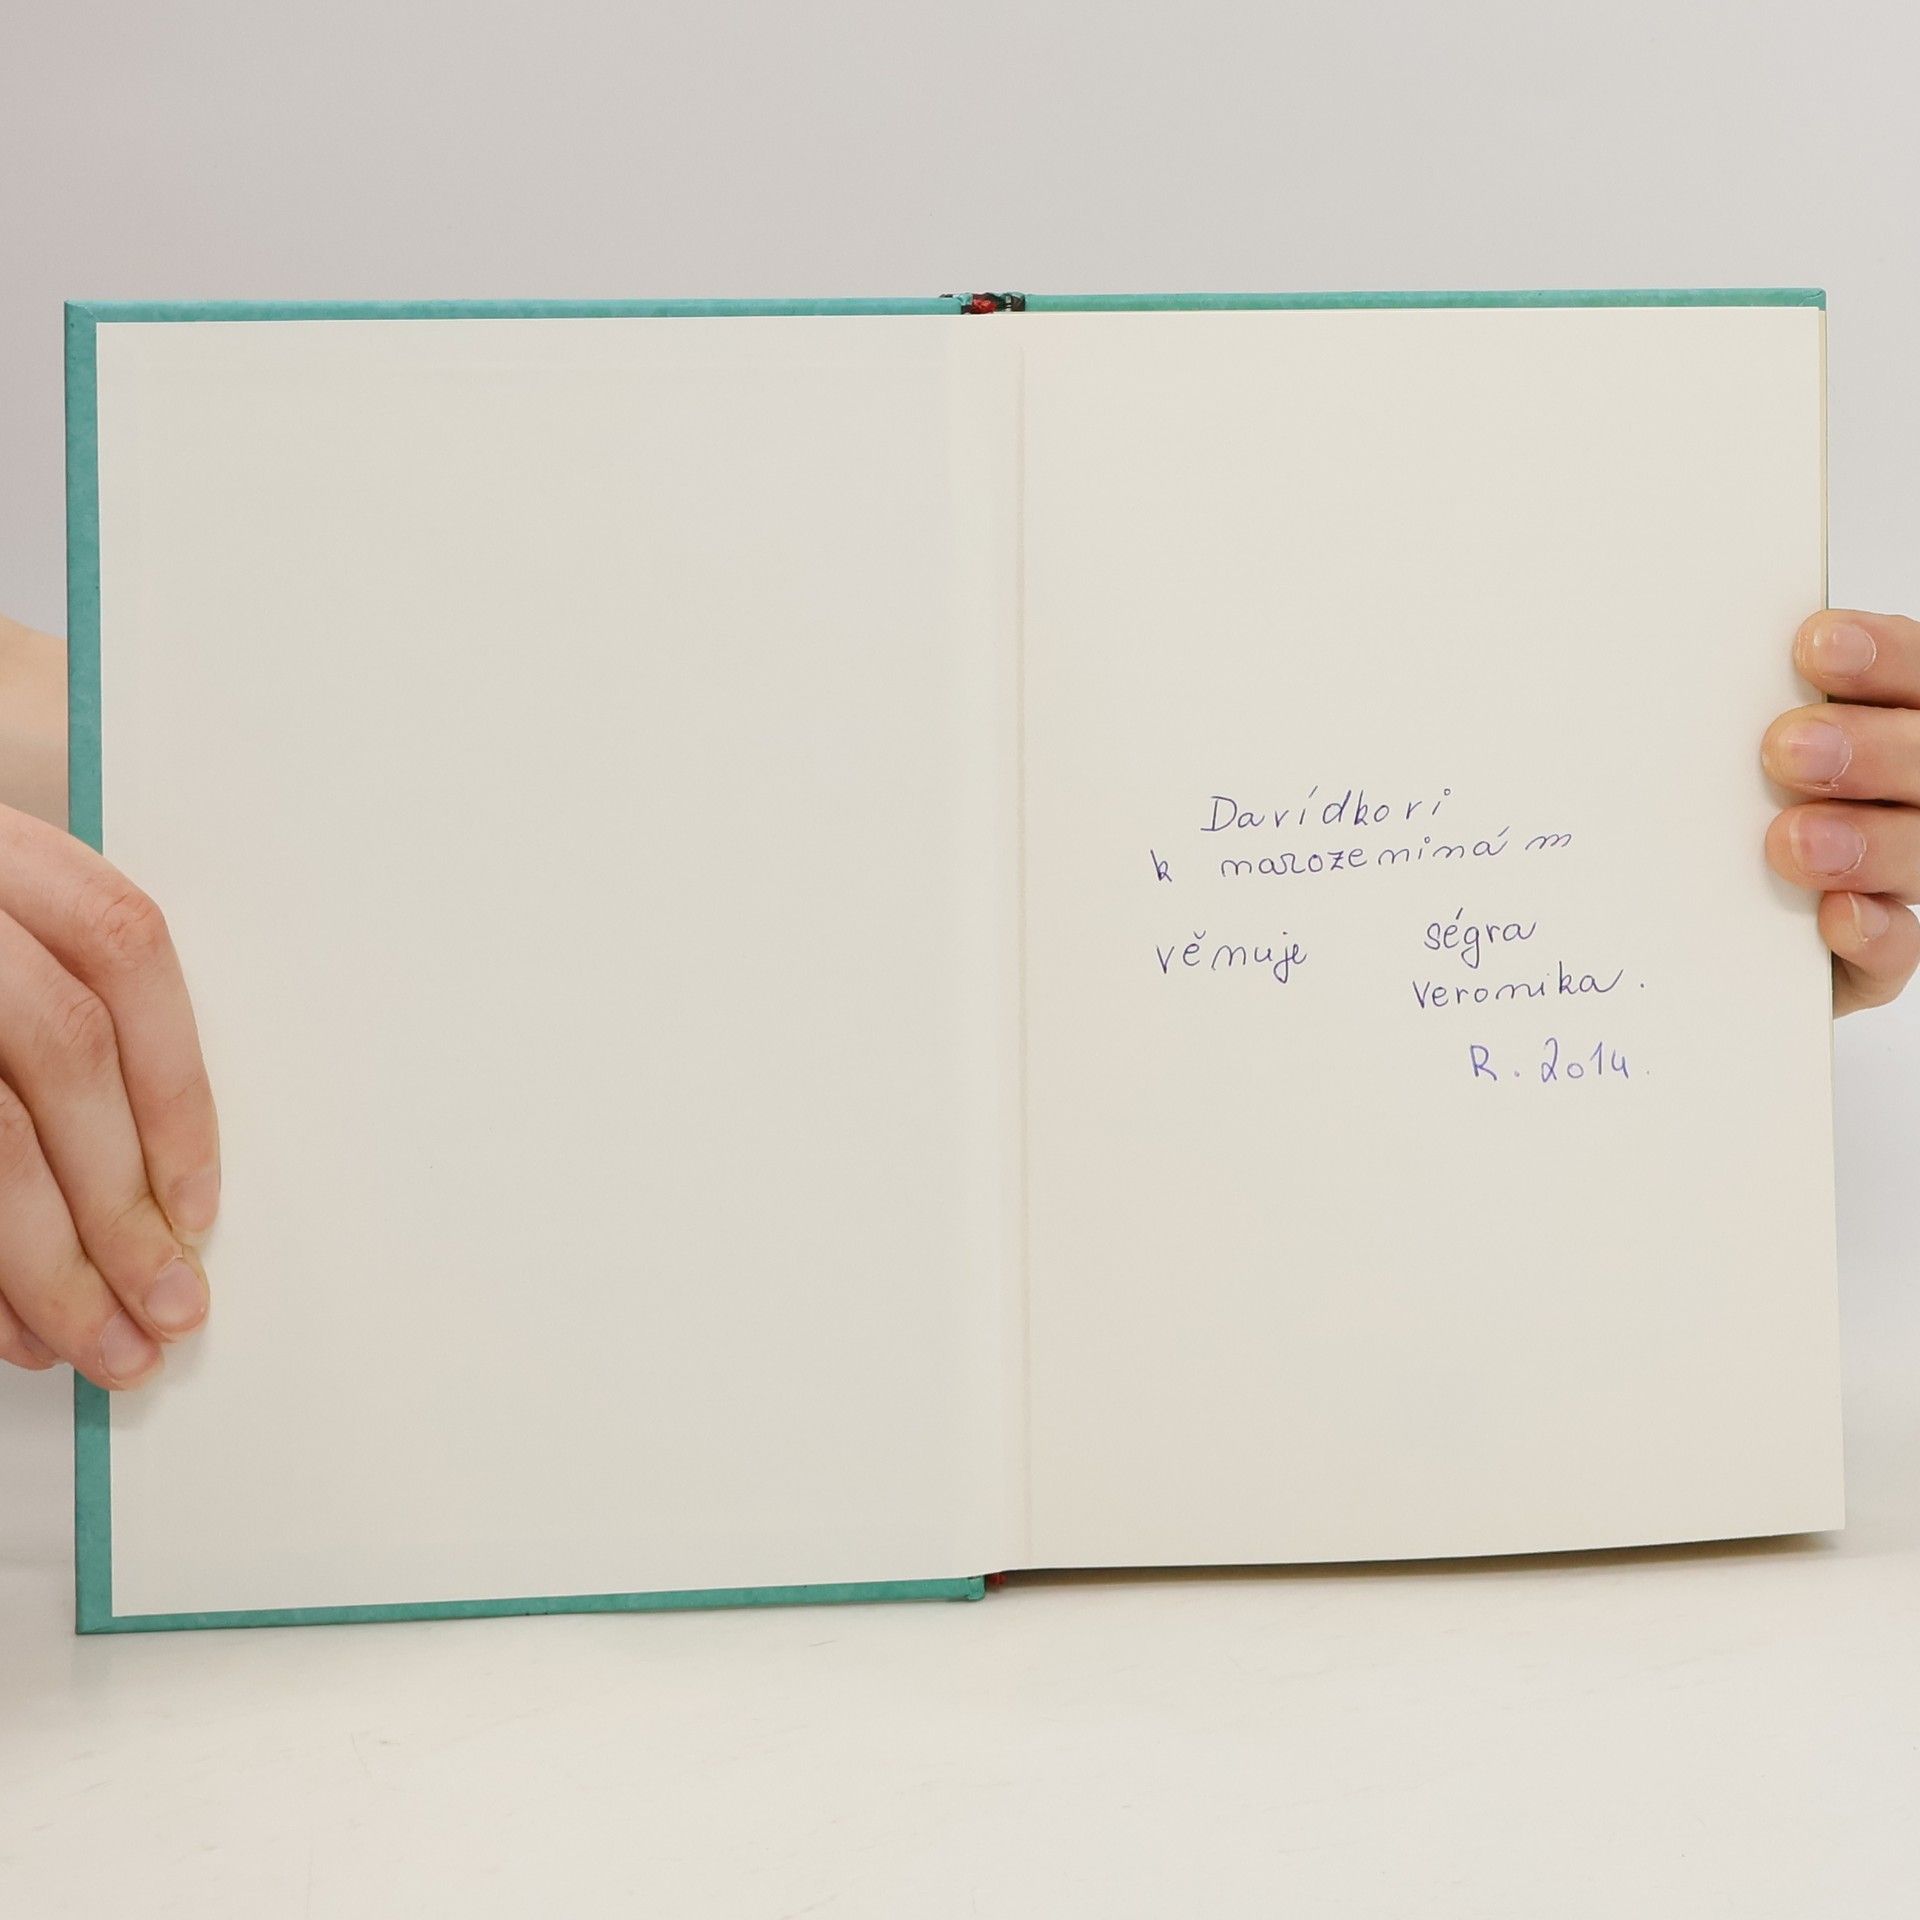 Davídkovi
k narozeninám
věnuje ségra
Veronika.
R. 2014.